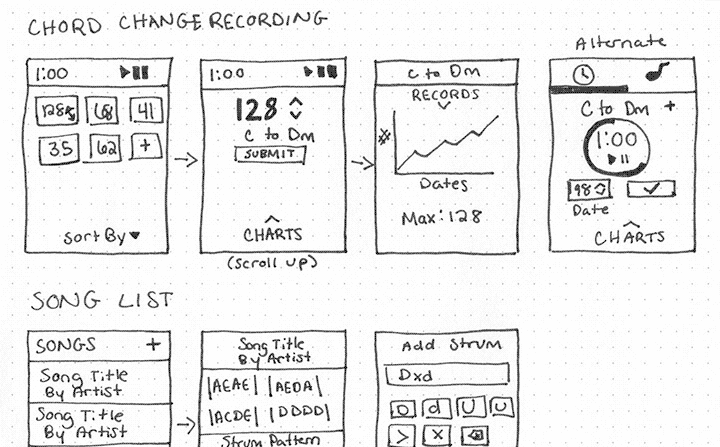 CHORD CHANGE RECORDING
1:00
128
68
41
35
62
+
Sort By
1:00
128
C to Dm
SUBMIT
CHARTS
(Scroll up)
C to Dm
RECORDS
#
Dates
Max: 128
Alternate
C to Dm +
1:00
98
Date
CHARTS
SONG LIST
SONGS +
Song Title
By Artist
Song Title
By Artist
Song Title
By Artist
|AEAE| |AEDA|
|ACDE| |DDDD|
Strum Pattern
Add Strum
Dxd
D d U u
> x